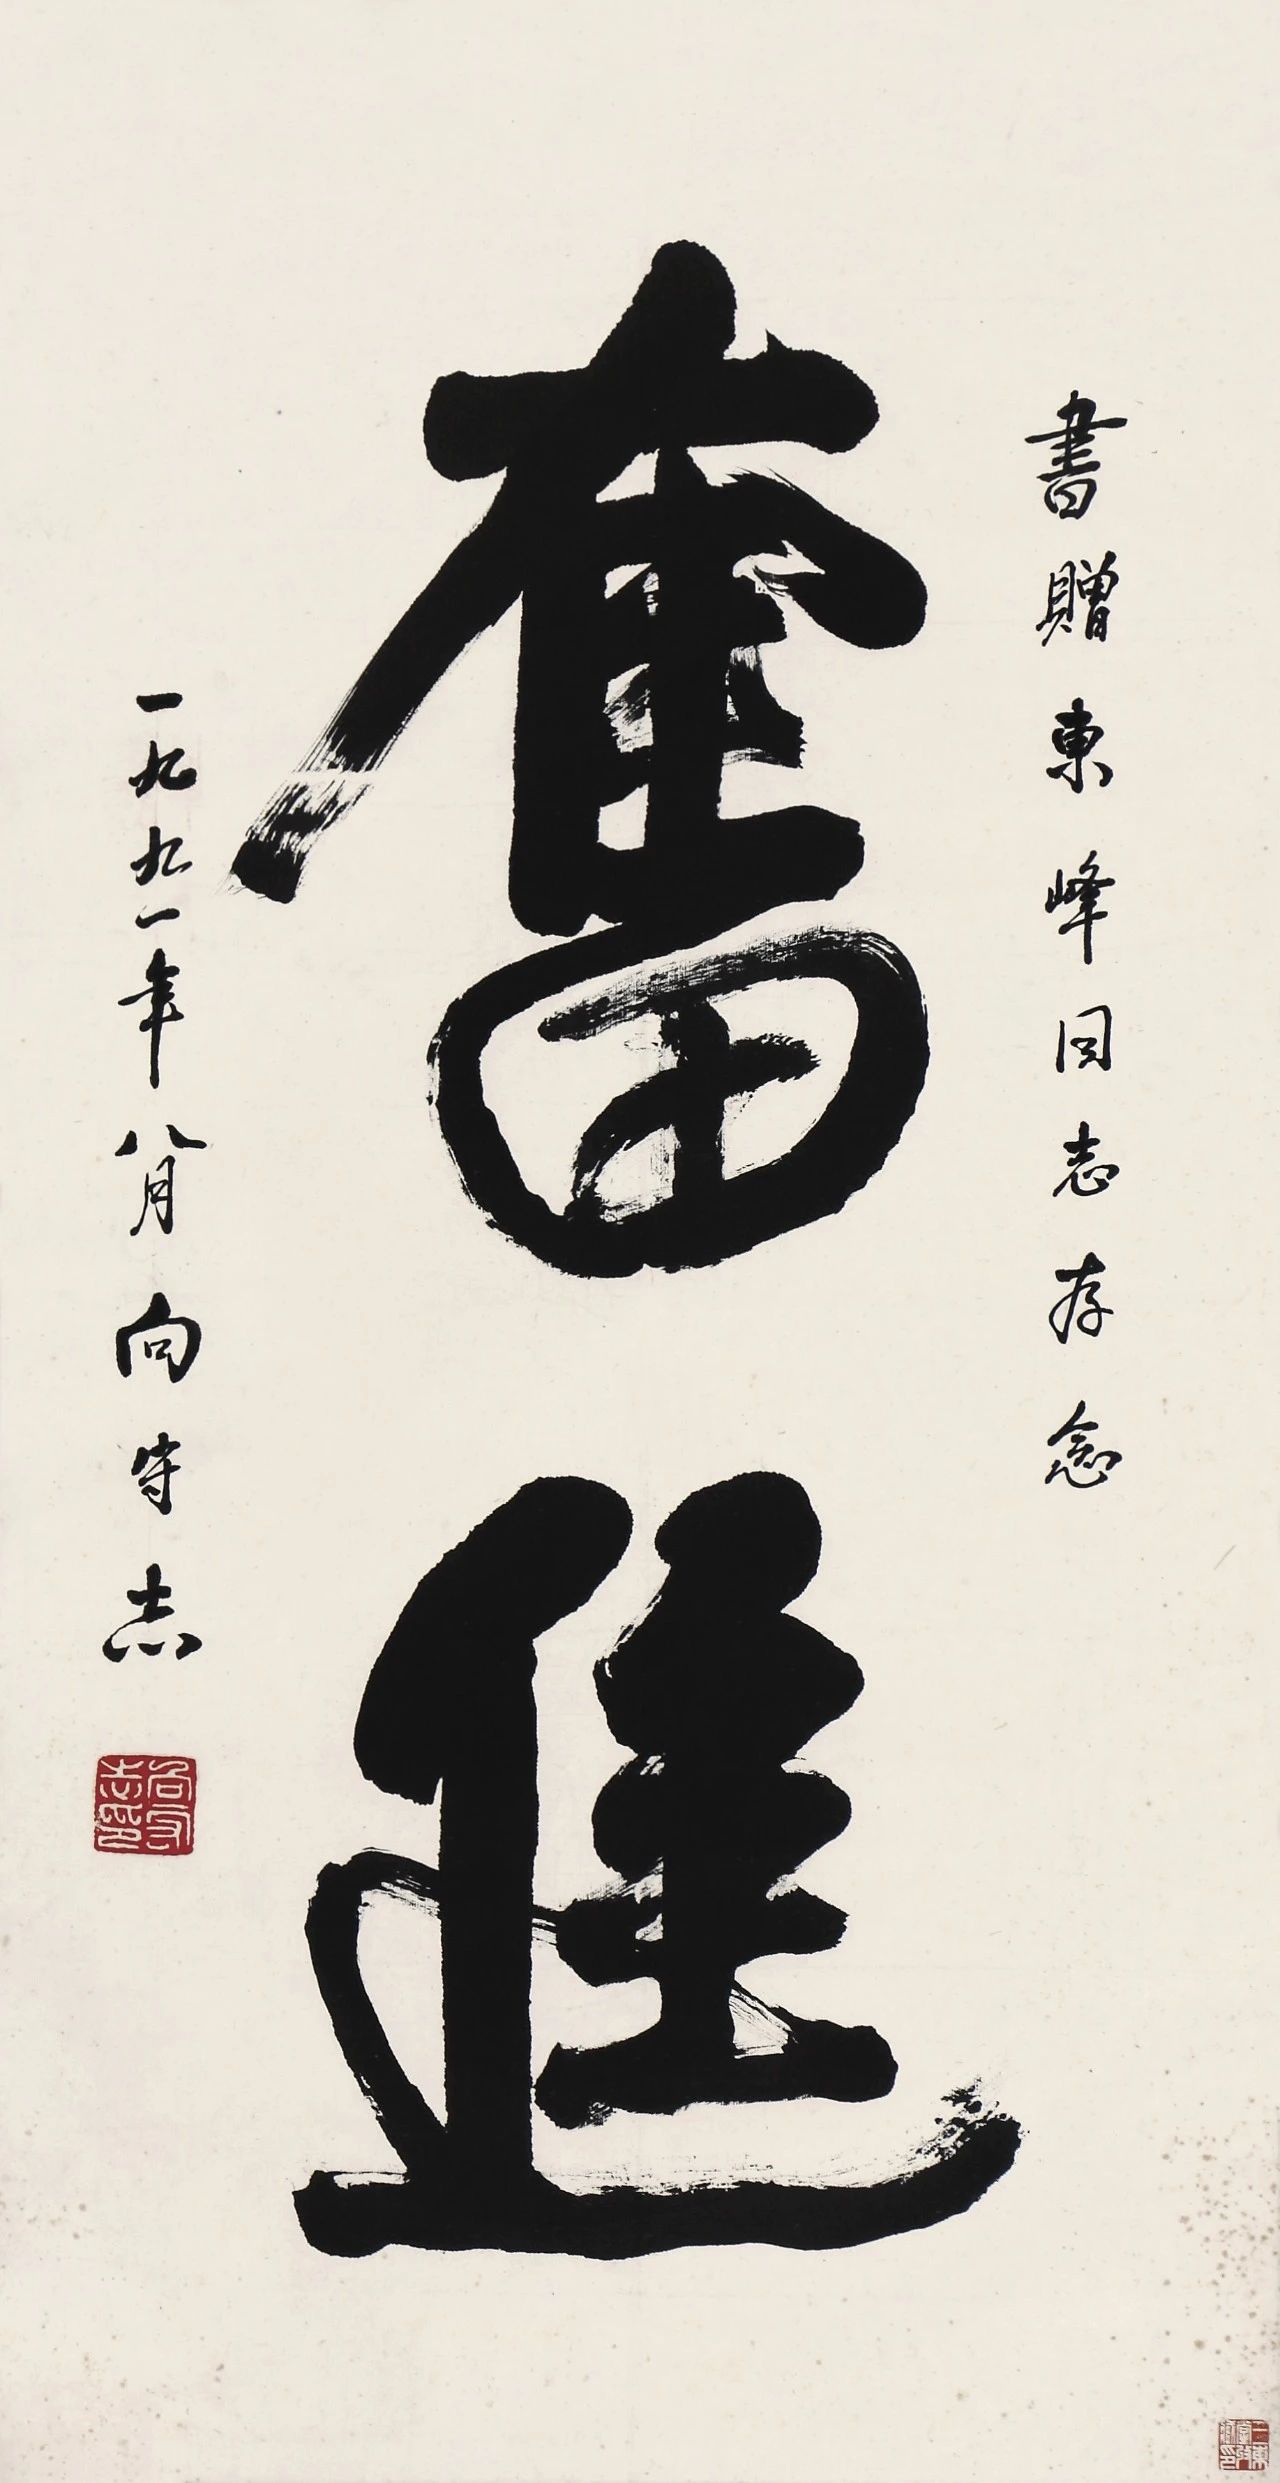 書贈東峰同志存念
奮進
一九九一年八月向守志
向守志印